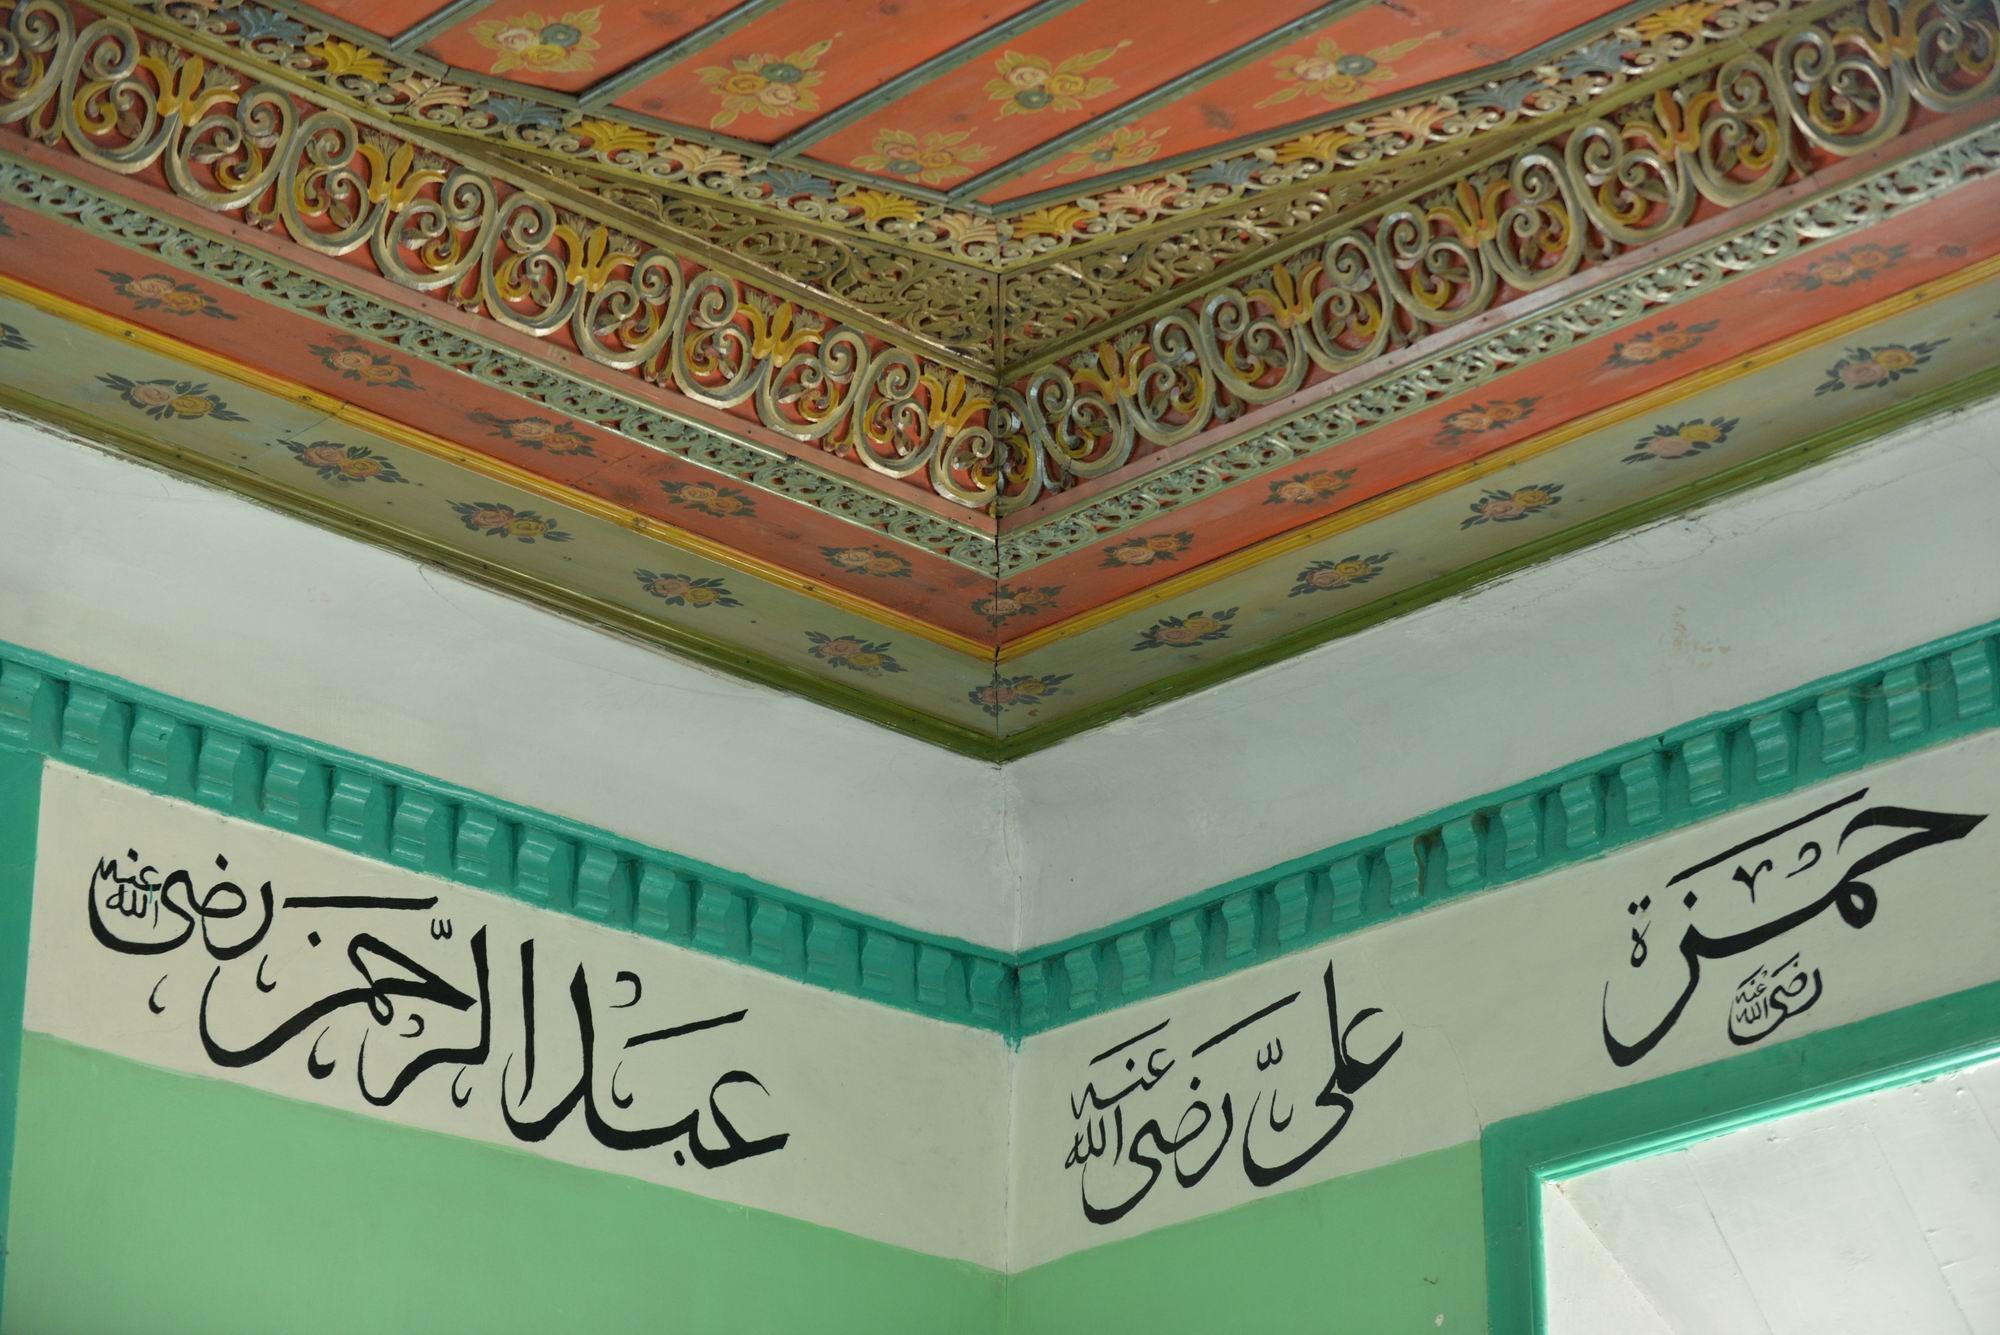 حمزة رضى الله عنه
علىّ رضى الله عنه
عبد الرّحمن رضى الله عنه